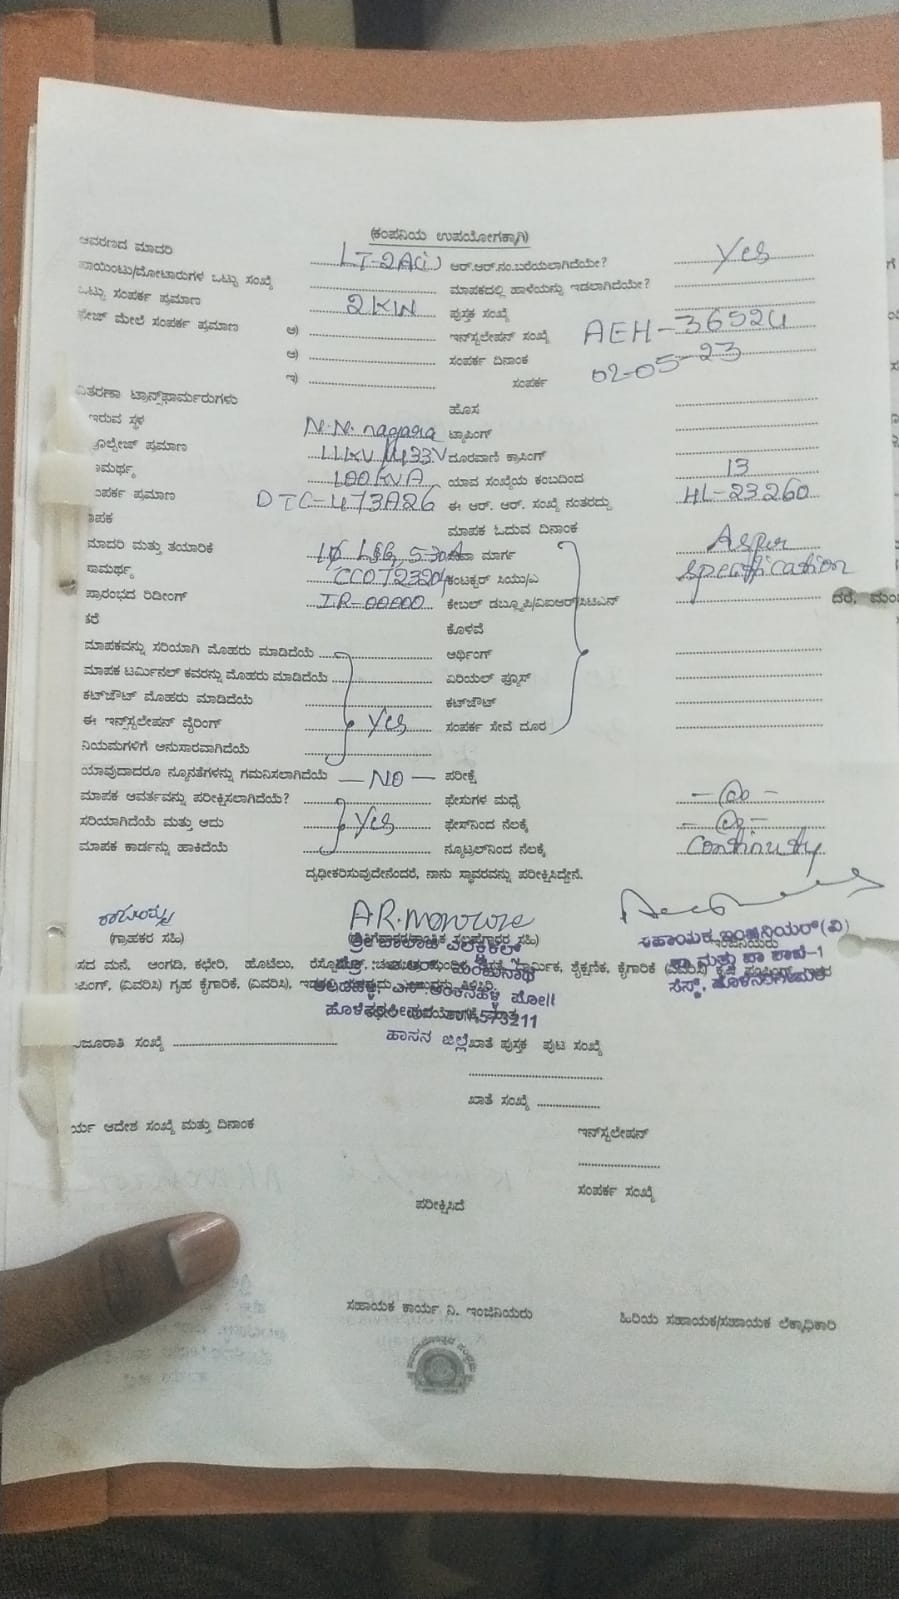 (ಕಂಪನಿಯ ಉಪಯೋಗಕ್ಕಾಗಿ)
ಆವರಣದ ಮಾದರಿ LT-2A(i) ಆರ್.ಆರ್.ನಂ.ಬರೆಯಲಾಗಿದೆಯೇ? Yes
ಪಾಯಿಂಟು/ಮೋಟಾರುಗಳ ಒಟ್ಟು ಸಂಖ್ಯೆ ಮಾಪಕದಲ್ಲಿ ಹಾಳೆಯನ್ನು ಇಡಲಾಗಿದೆಯೇ?
ಒಟ್ಟು ಸಂಪರ್ಕ ಪ್ರಮಾಣ 2KW ಪುಸ್ತಕ ಸಂಖ್ಯೆ
ಫೇಜ್ ಮೇಲೆ ಸಂಪರ್ಕ ಪ್ರಮಾಣ ಅ) ಇನ್‌ಸ್ಟಲೇಷನ್ ಸಂಖ್ಯೆ AEH-36524
ಆ) ಸಂಪರ್ಕ ದಿನಾಂಕ 02-05-23
ಇ) ಸಂಪರ್ಕ
ವಿತರಣಾ ಟ್ರಾನ್ಸ್‌ಫಾರ್ಮರುಗಳು ಹೊಸ
ಇರುವ ಸ್ಥಳ N.N. nagara ಟ್ಯಾಪಿಂಗ್
ವೋಲ್ಟೇಜ್ ಪ್ರಮಾಣ 11KV/433V ದೂರವಾಣಿ ಕ್ರಾಸಿಂಗ್
ಸಾಮರ್ಥ್ಯ 100KVA ಯಾವ ಸಂಖ್ಯೆಯ ಕಂಬದಿಂದ 13
ಸಂಪರ್ಕ ಪ್ರಮಾಣ DTC-473A26 ಈ ಆರ್. ಆರ್. ಸಂಖ್ಯೆ ನಂತರದ್ದು HL-23260
ಮಾಪಕ ಮಾಪಕ ಓದುವ ದಿನಾಂಕ
ಮಾದರಿ ಮತ್ತು ತಯಾರಿಕೆ 1Ø L&G, 5-30A ಸೇವಾ ಮಾರ್ಗ As per
ಸಾಮರ್ಥ್ಯ ಕಂಟಕ್ಟರ್ ಸಿಯು/ಎ specification
ಪ್ರಾರಂಭದ ರಿಡೀಂಗ್ IR-00000 ಕೇಬಲ್ ಡಬ್ಲ್ಯೂಪಿ/ವಿಐಆರ್/ಸಿಟಿಎನ್
ಕೊಳವೆ
ಮಾಪಕವನ್ನು ಸರಿಯಾಗಿ ಮೊಹರು ಮಾಡಿದೆಯೆ ಆರ್ಥಿಂಗ್
ಮಾಪಕ ಟರ್ಮಿನಲ್ ಕವರನ್ನು ಮೊಹರು ಮಾಡಿದೆಯೆ ಏರಿಯಲ್ ಫ್ಯೂಸ್
ಕಟ್‌ಜೌಟ್ ಮೊಹರು ಮಾಡಿದೆಯೆ ಕಟ್‌ಜೌಟ್
ಈ ಇನ್‌ಸ್ಟಲೇಷನ್ ವೈರಿಂಗ್ Yes ಸಂಪರ್ಕ ಸೇವೆ ದೂರ
ನಿಯಮಗಳಿಗೆ ಅನುಸಾರವಾಗಿದೆಯೆ
ಯಾವುದಾದರೂ ನ್ಯೂನತೆಗಳನ್ನು ಗಮನಿಸಲಾಗಿದೆಯೆ — NO — ಪರೀಕ್ಷೆ
ಮಾಪಕ ಆವರ್ತವನ್ನು ಪರೀಕ್ಷಿಸಲಾಗಿದೆಯೆ? ಫೇಸುಗಳ ಮಧ್ಯೆ
ಸರಿಯಾಗಿದೆಯೆ ಮತ್ತು ಅದು Yes ಫೇಸ್‌ನಿಂದ ನೆಲಕ್ಕೆ
ಮಾಪಕ ಕಾರ್ಡನ್ನು ಹಾಕಿದೆಯೆ ನ್ಯೂಟ್ರಲ್‌ನಿಂದ ನೆಲಕ್ಕೆ Continuity
ದೃಢೀಕರಿಸುವುದೇನೆಂದರೆ, ನಾನು ಸ್ಥಾವರವನ್ನು ಪರೀಕ್ಷಿಸಿದ್ದೇನೆ.
(ಗ್ರಾಹಕರ ಸಹಿ)
ಸಹಾಯಕ ಇಂಜಿನಿಯರ್(ವಿ)
ಮನೆ, ಅಂಗಡಿ, ಕಛೇರಿ, ಹೊಟೆಲು, ಧಾರ್ಮಿಕ, ಶೈಕ್ಷಣಿಕ, ಕೈಗಾರಿಕೆ (ವಿವರಿಸಿ)
(ವಿವರಿಸಿ) ಗೃಹ ಕೈಗಾರಿಕೆ, (ವಿವರಿಸಿ),
573211
ಹಾಸನ ಜಿಲ್ಲೆ
ಸಂಖ್ಯೆ ಖಾತೆ ಪುಸ್ತಕ ಪುಟ ಸಂಖ್ಯೆ
ಖಾತೆ ಸಂಖ್ಯೆ
ಆದೇಶ ಸಂಖ್ಯೆ ಮತ್ತು ದಿನಾಂಕ ಇನ್‌ಸ್ಟಲೇಷನ್
ಸಂಪರ್ಕ ಸಂಖ್ಯೆ
ಪರೀಕ್ಷಿಸಿದೆ
ಸಹಾಯಕ ಕಾರ್ಯ ನಿ. ಇಂಜಿನಿಯರು ಹಿರಿಯ ಸಹಾಯಕ/ಸಹಾಯಕ ಲೆಕ್ಕಾಧಿಕಾರಿ